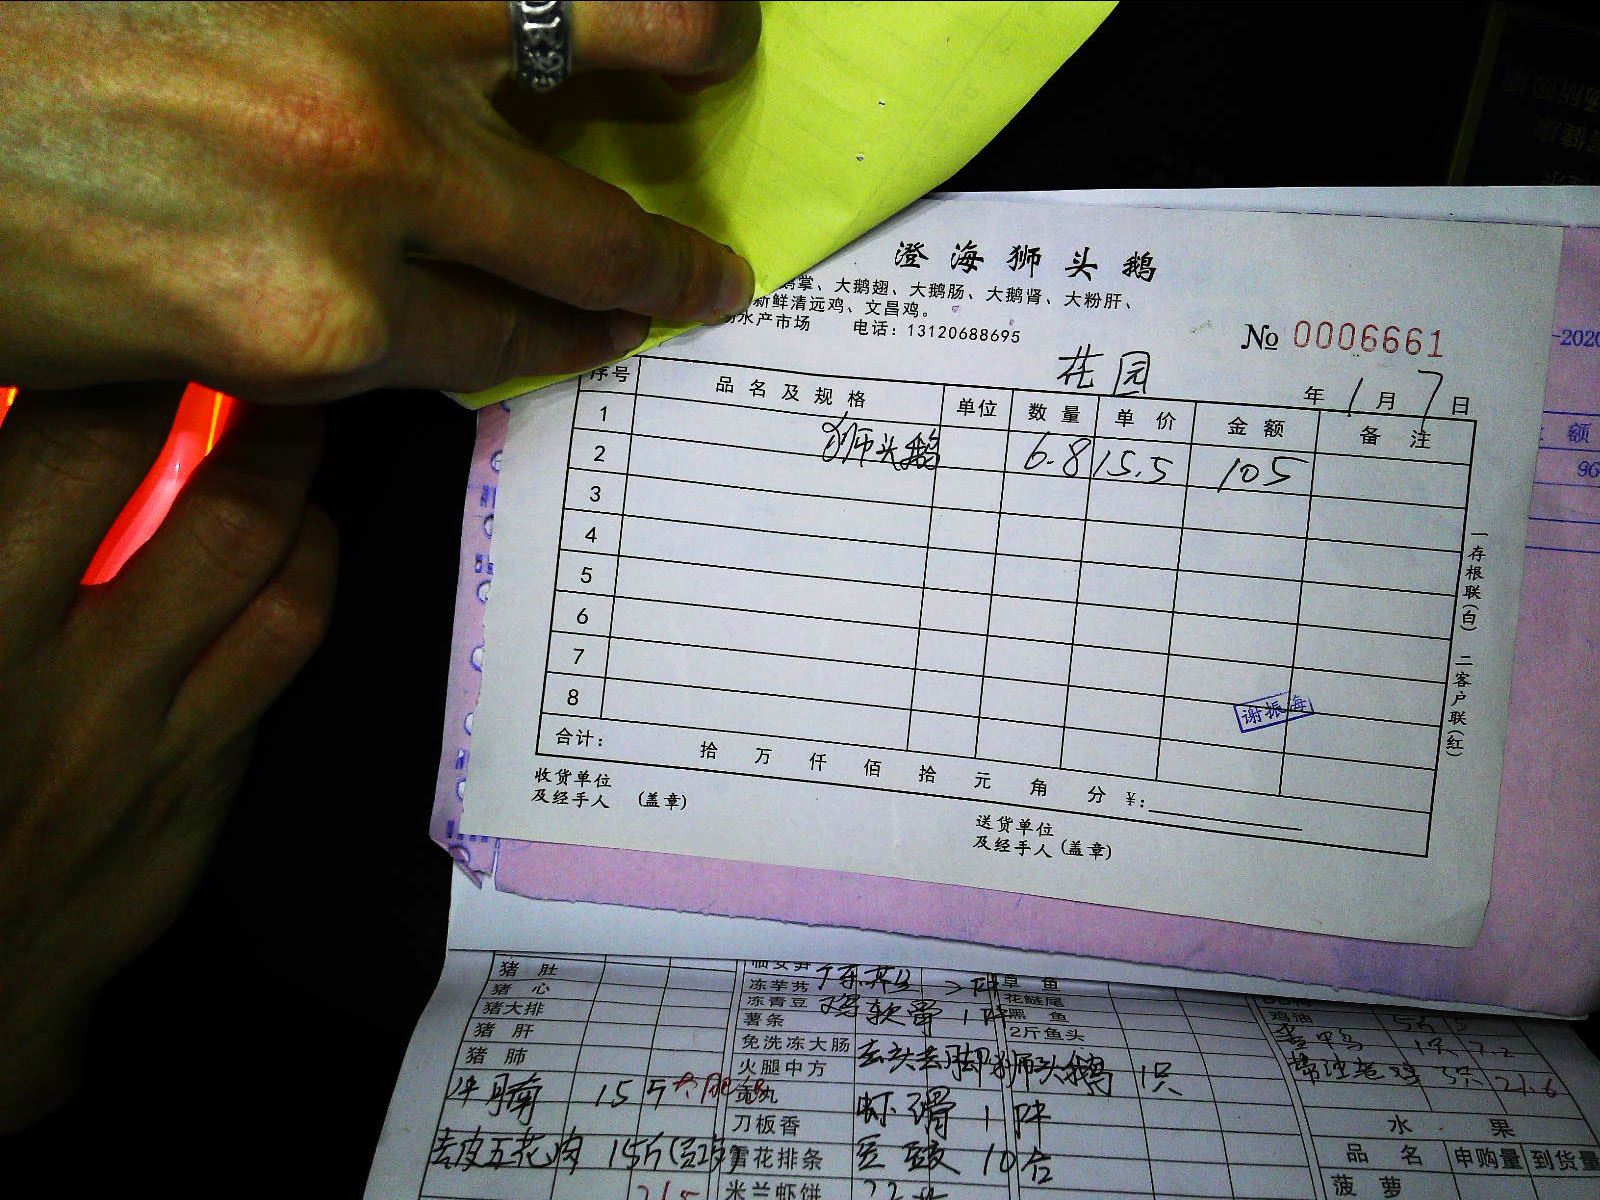 澄海狮头鹅
掌、大鹅翅、大鹅肠、大鹅肾、大粉肝、
新鲜清远鸡、文昌鸡。
水产市场 电话：13120688695
No 0006661
花园
年 1 月 7 日
序号 品名及规格 单位 数量 单价 金额 备注
1
2 狮头鹅 6.8 15.5 105
3
4
5
6
7
8
谢振海
合计： 拾 万 仟 佰 拾 元 角 分 ￥:
收货单位
及经手人 (盖章)
送货单位
及经手人 (盖章)
一存根联(白) 二客户联(红)
-2020
额
96
猪肚
猪心
猪大排
猪肝
猪肺
15斤
去皮五花肉 15斤
冻芋艿
冻青豆 鸡软骨 1件
薯条
免洗冻大肠
火腿中方 去头去脚狮头鹅 1只
虾滑 1件
刀板香
雪花排条 豆豉 10合
米兰虾饼
草鱼
花鲢尾
黑鱼
2斤鱼头
鸡油 5斤
1只 7.2
3只 21.6
水果
品名 申购量 到货量
菠萝